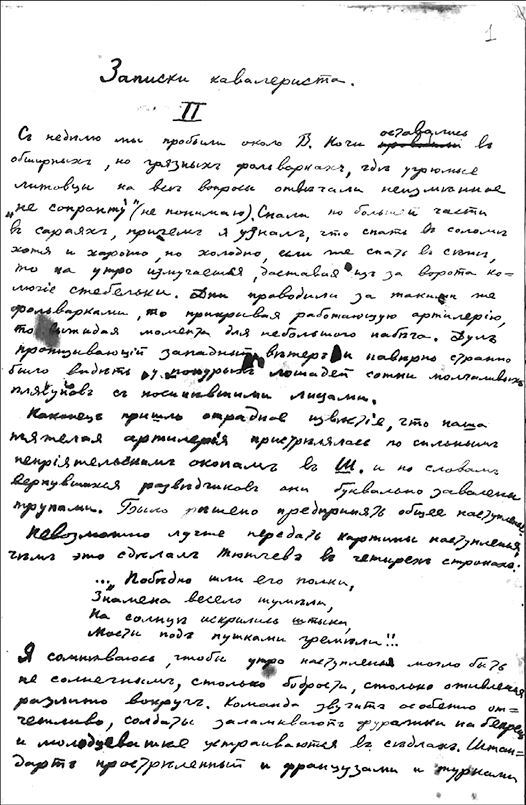 1
Записки кавалериста.
II
Съ недѣлю мы пробыли около В. Ночи оставались въ
обширныхъ, но грязныхъ фольваркахъ, гдѣ угрюмые
литовцы на всѣ вопросы отвѣчали неизмѣнное
„не сопранту“ (не понимаю). Спали по большей части
въ сараяхъ, причемъ я узналъ, что спать въ соломѣ
хотя и хорошо, но холодно, если же спать въ сѣнѣ,
то на утро измучаешься, доставая изъ за ворота ко-
лючіе стебельки. Дни проводили за такими же
фольварками, то прикрывая работающую артилерію,
то ожидая момента для небольшого набѣга. Дулъ
пронизывающій западный вѣтеръ и навѣрно странно
было видѣть у понурыхъ лошадей сотни молчаливыхъ
плясуновъ съ посинѣвшими лицами.
Наконецъ пришло отрадное извѣстіе, что наша
тяжелая артилерія пристрѣлялась по сильнымъ
непріятельскимъ окопамъ въ Ш. и по словамъ
вернувшихся развѣдчиковъ они буквально завалены
трупами. Было рѣшено предпринять общее наступленье.
Невозможно лучше передать картины наступленья,
чѣмъ это сдѣлалъ Тютчевъ въ четырехъ строкахъ:
... „Побѣдно шли его полки,
Знамена весело шумѣли,
На солнцѣ искрились штыки,
Мосты подъ пушками гремѣли!!
Я сомнѣваюсь, чтобы утро наступленья могло быть
не солнечнымъ, столько бодрости, столько оживленья
разлито вокругъ. Команда звучитъ особенно от-
четливо, солдаты заламываютъ фуражки на бекрень
и молодцеватѣе устраиваются въ сѣдлахъ. Штан-
дартъ прострѣленный и французами и турками